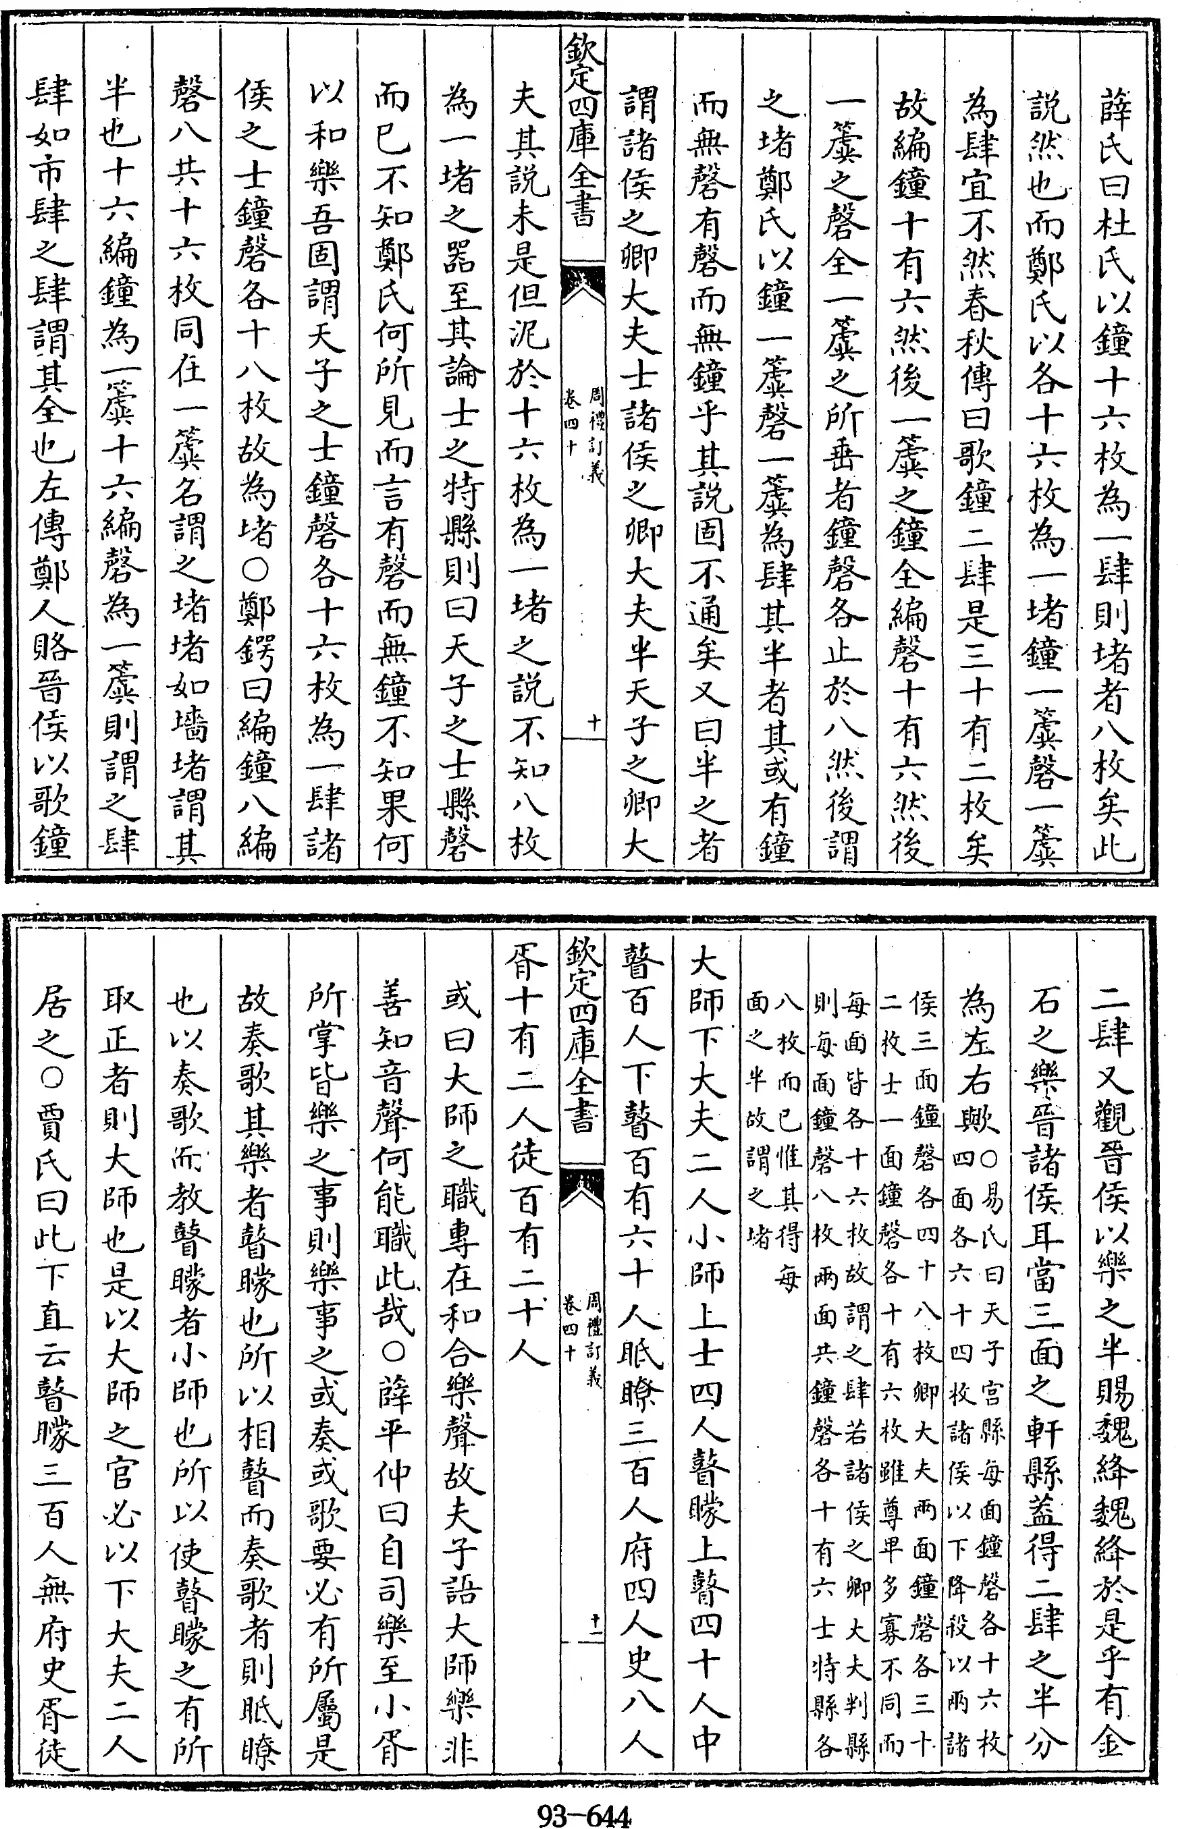 薛氏曰杜氏以鐘十六枚為一肆則堵者八枚矣此
説然也而鄭氏以各十六枚為一堵鐘一簴磬一簴
為肆宜不然春秋傳曰歌鐘二肆是三十有二枚矣
故編鐘十有六然後一簴之鐘全編磬十有六然後
一簴之磬全一簴之所垂者鐘磬各止於八然後謂
之堵鄭氏以鐘一簴磬一簴為肆其半者其或有鐘
而無磬有磬而無鐘乎其説固不通矣又曰半之者
謂諸侯之卿大夫士諸侯之卿大夫半天子之卿大
欽定四庫全書
周禮訂義
卷四十
十
夫其説未是但泥於十六枚為一堵之説不知八枚
為一堵之器至其論士之特縣則曰天子之士縣磬
而已不知鄭氏何所見而言有磬而無鐘不知果何
以和樂吾固謂天子之士鐘磬各十六枚為一肆諸
侯之士鐘磬各十八枚故為堵○鄭鍔曰編鐘八編
磬八共十六枚同在一簴名謂之堵堵如墻堵謂其
半也十六編鐘為一簴十六編磬為一簴則謂之肆
肆如市肆之肆謂其全也左傳鄭人賂晉侯以歌鐘
二肆又觀晉侯以樂之半賜魏絳魏絳於是乎有金
石之樂晉諸侯耳當三面之軒縣葢得二肆之半分
為左右歟○易氏曰天子宫縣每面鐘磬各十六枚
四面各六十四枚諸侯以下降殺以兩諸
侯三面鐘磬各四十八枚卿大夫兩面鐘磬各三十
二枚士一面鐘磬各十有六枚雖尊卑多寡不同而
每面皆各十六枚故謂之肆若諸侯之卿大夫判縣
則每面鐘磬八枚兩面共鐘磬各十有六士特縣各
八枚而已惟其得每
面之半故謂之堵
大師下大夫二人小師上士四人瞽矇上瞽四十人中
瞽百人下瞽百有六十人眡瞭三百人府四人史八人
欽定四庫全書
周禮訂義
卷四十
十一
胥十有二人徒百有二十人
或曰大師之職專在和合樂聲故夫子語大師樂非
善知音聲何能職此哉○薛平仲曰自司樂至小胥
所掌皆樂之事則樂事之或奏或歌要必有所屬是
故奏歌其樂者瞽矇也所以相瞽而奏歌者則眡瞭
也以奏歌而教瞽矇者小師也所以使瞽矇之有所
取正者則大師也是以大師之官必以下大夫二人
居之○賈氏曰此下直云瞽矇三百人無府史胥徒
93-644